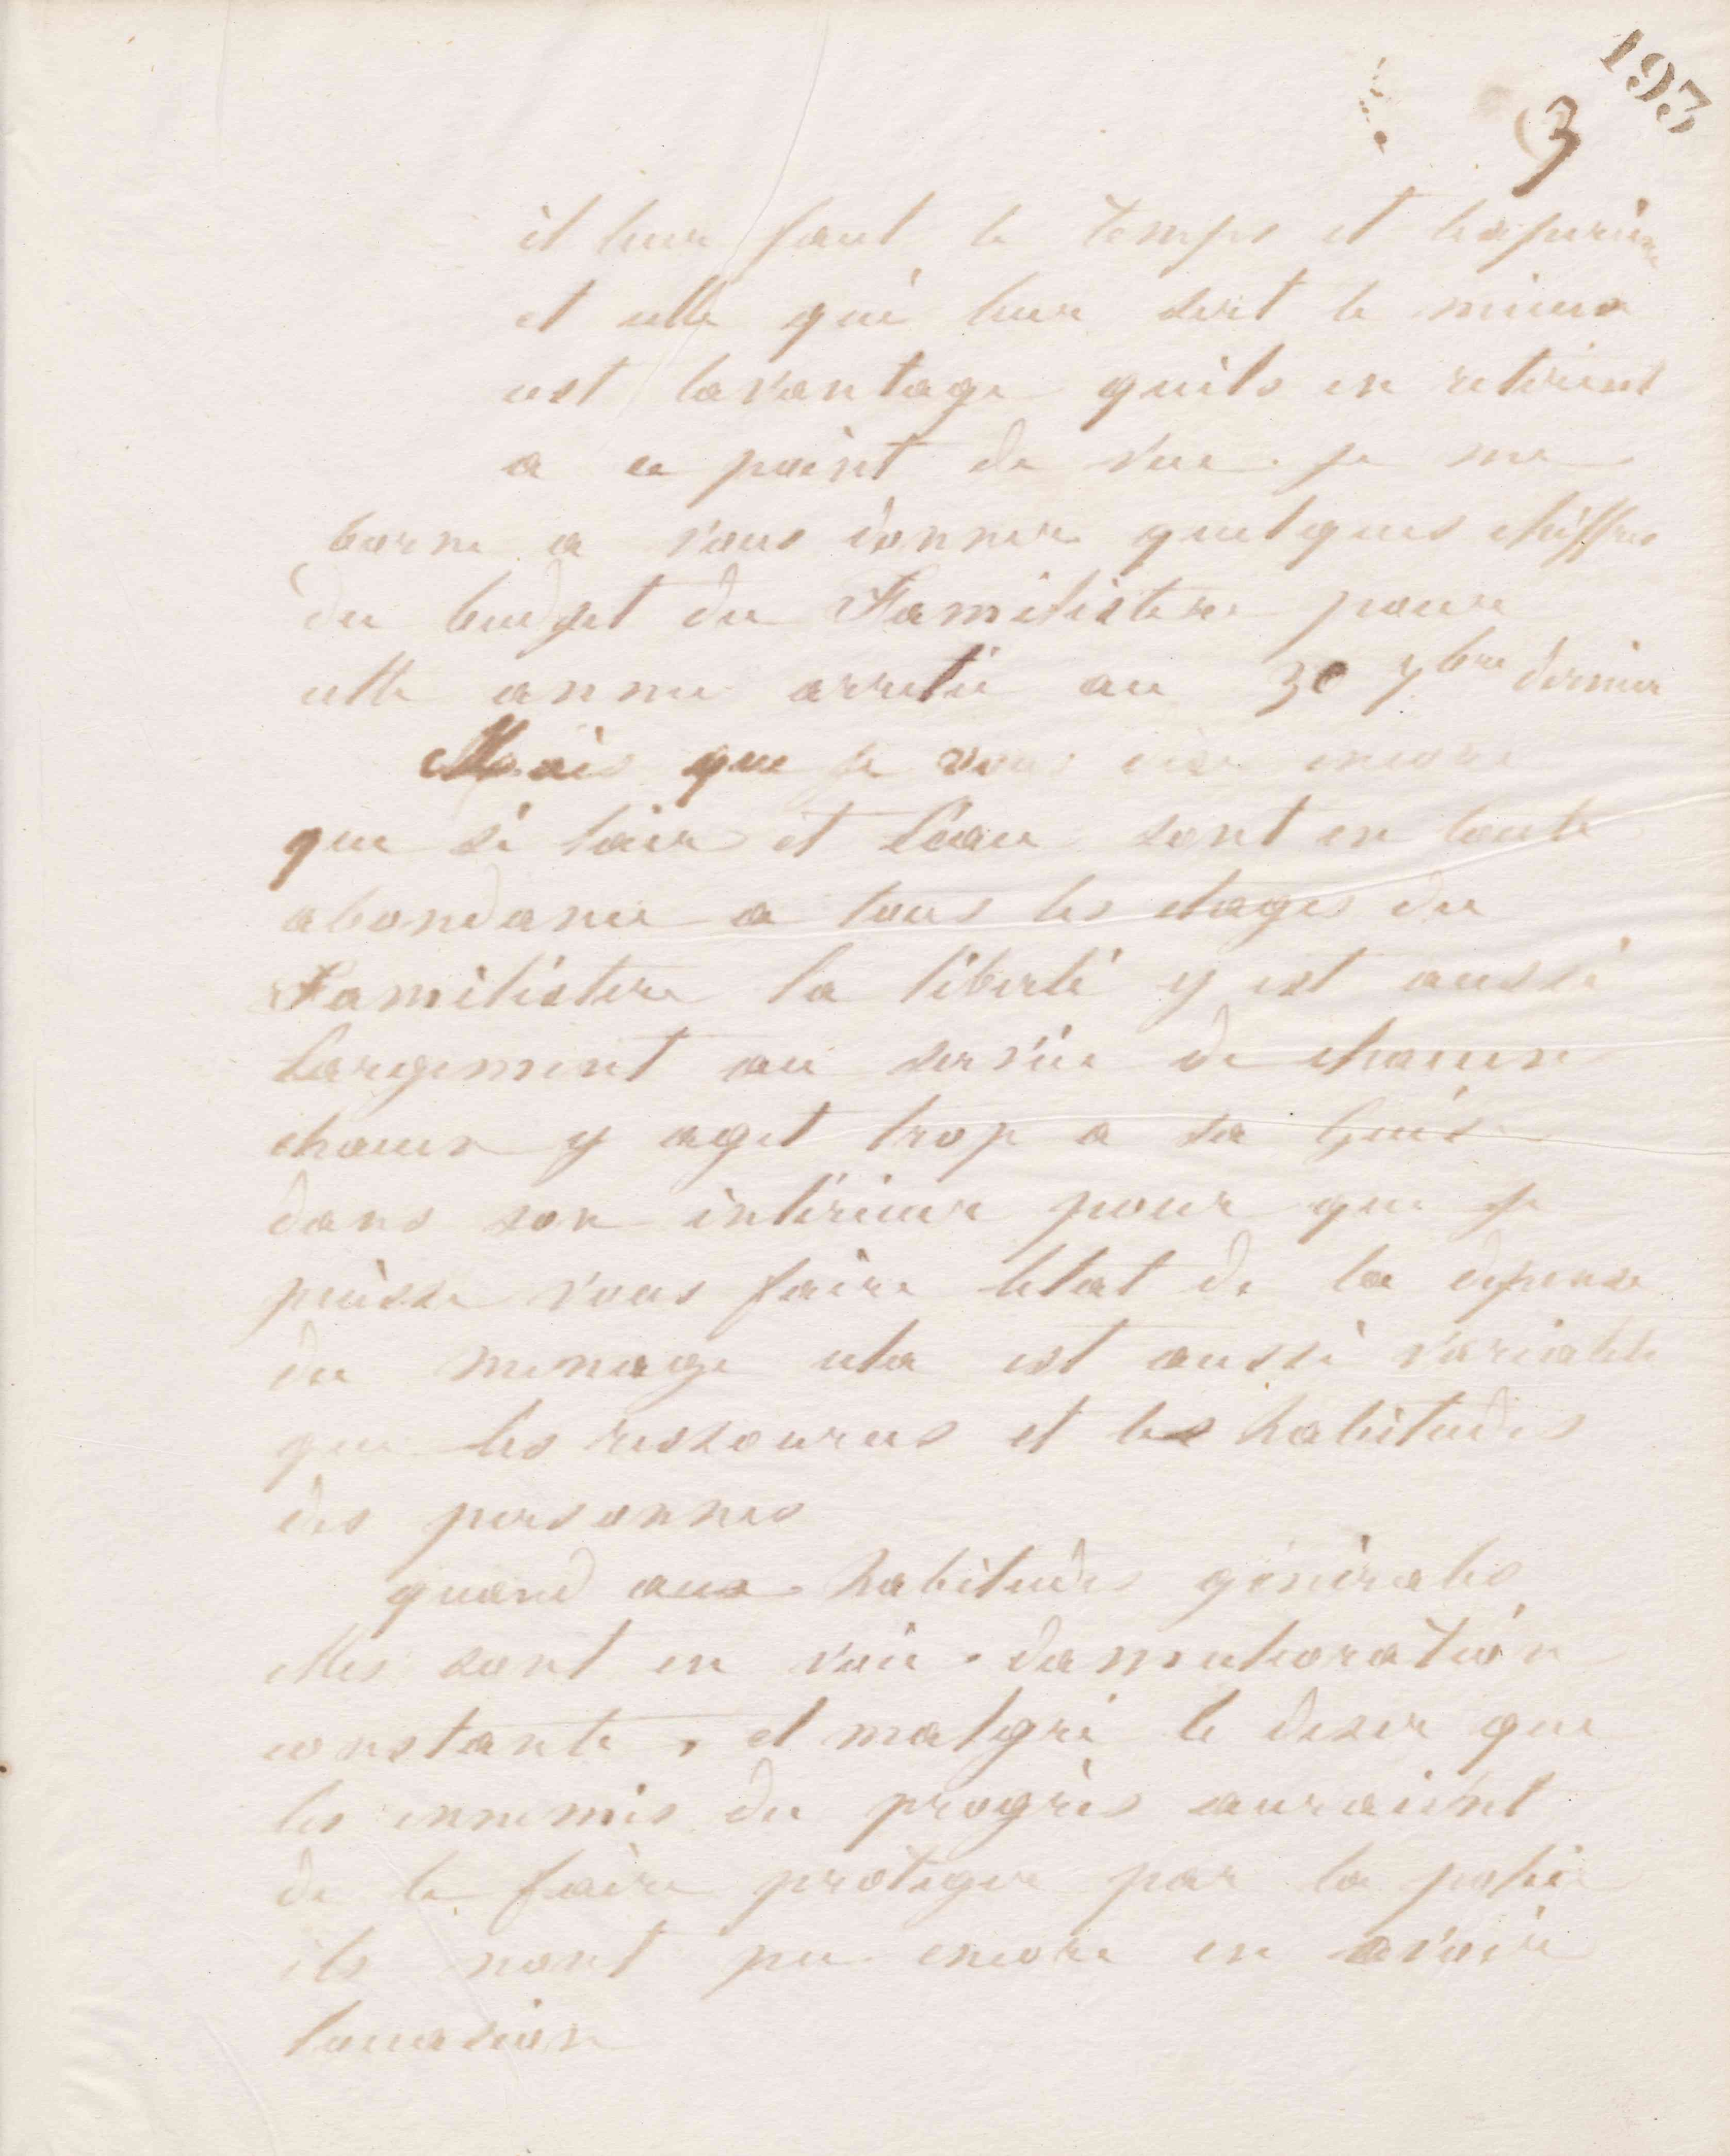 193
3
il leur faut le temps et lexperience
et celle qui leur sert le mieux
est lavantage quils en retirent
a ce point de vue je me
borne a vous donner quelques chiffres
du budjet du Familistere pour
cette annee arretée au 30 7bre dernier
Mais que je vous dise encore
que si lair et leau sont en toute
abondance a tous les etages du
Familistere la liberté y est aussi
largement au service de chacun
chacun y agit trop a sa guise
dans son intérieur pour que je
puisse vous faire letat de la depense
du menage cela est aussi variable
que les ressources et les habitudes
des personnes
quand aux habitudes générales
elles sont en voie damelioration
constante, et malgré le desir que
les ennemis du progrès auraient
de le faire proteger par la police
ils nont pu encore en avoir
loccasion